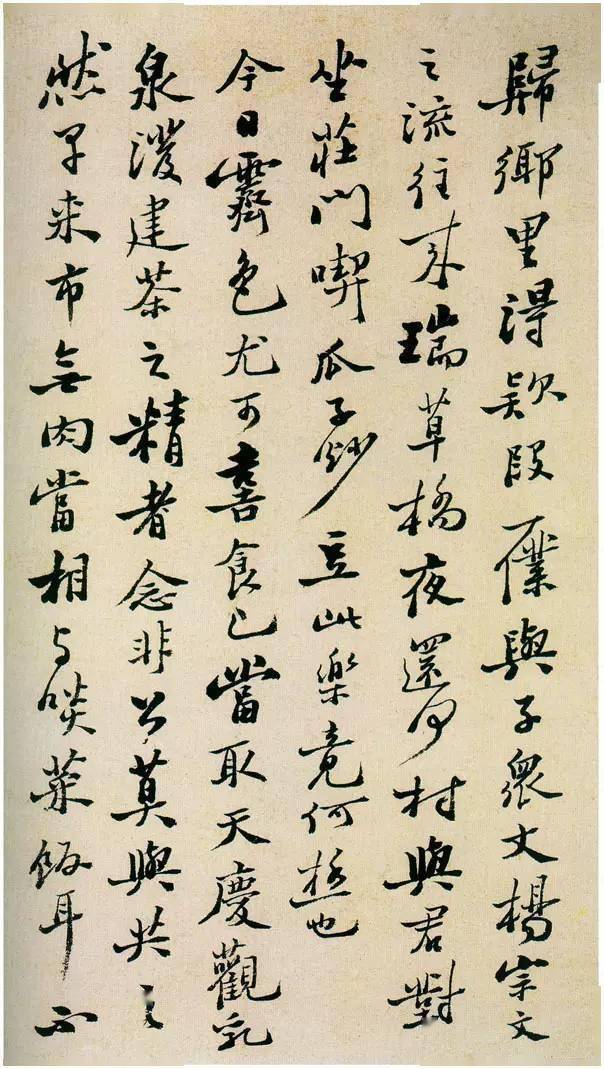 歸鄉里得款段一僕與子衆文楊宗文
之流往来瑞草橋夜還何村與君對
坐莊門喫瓜子炒豆此樂竟何極也
今日霽色尤可喜食已當取天慶觀乳
泉潑建茶之精者念非公莫與共之
然早来市無肉當相与啖菜飯耳不